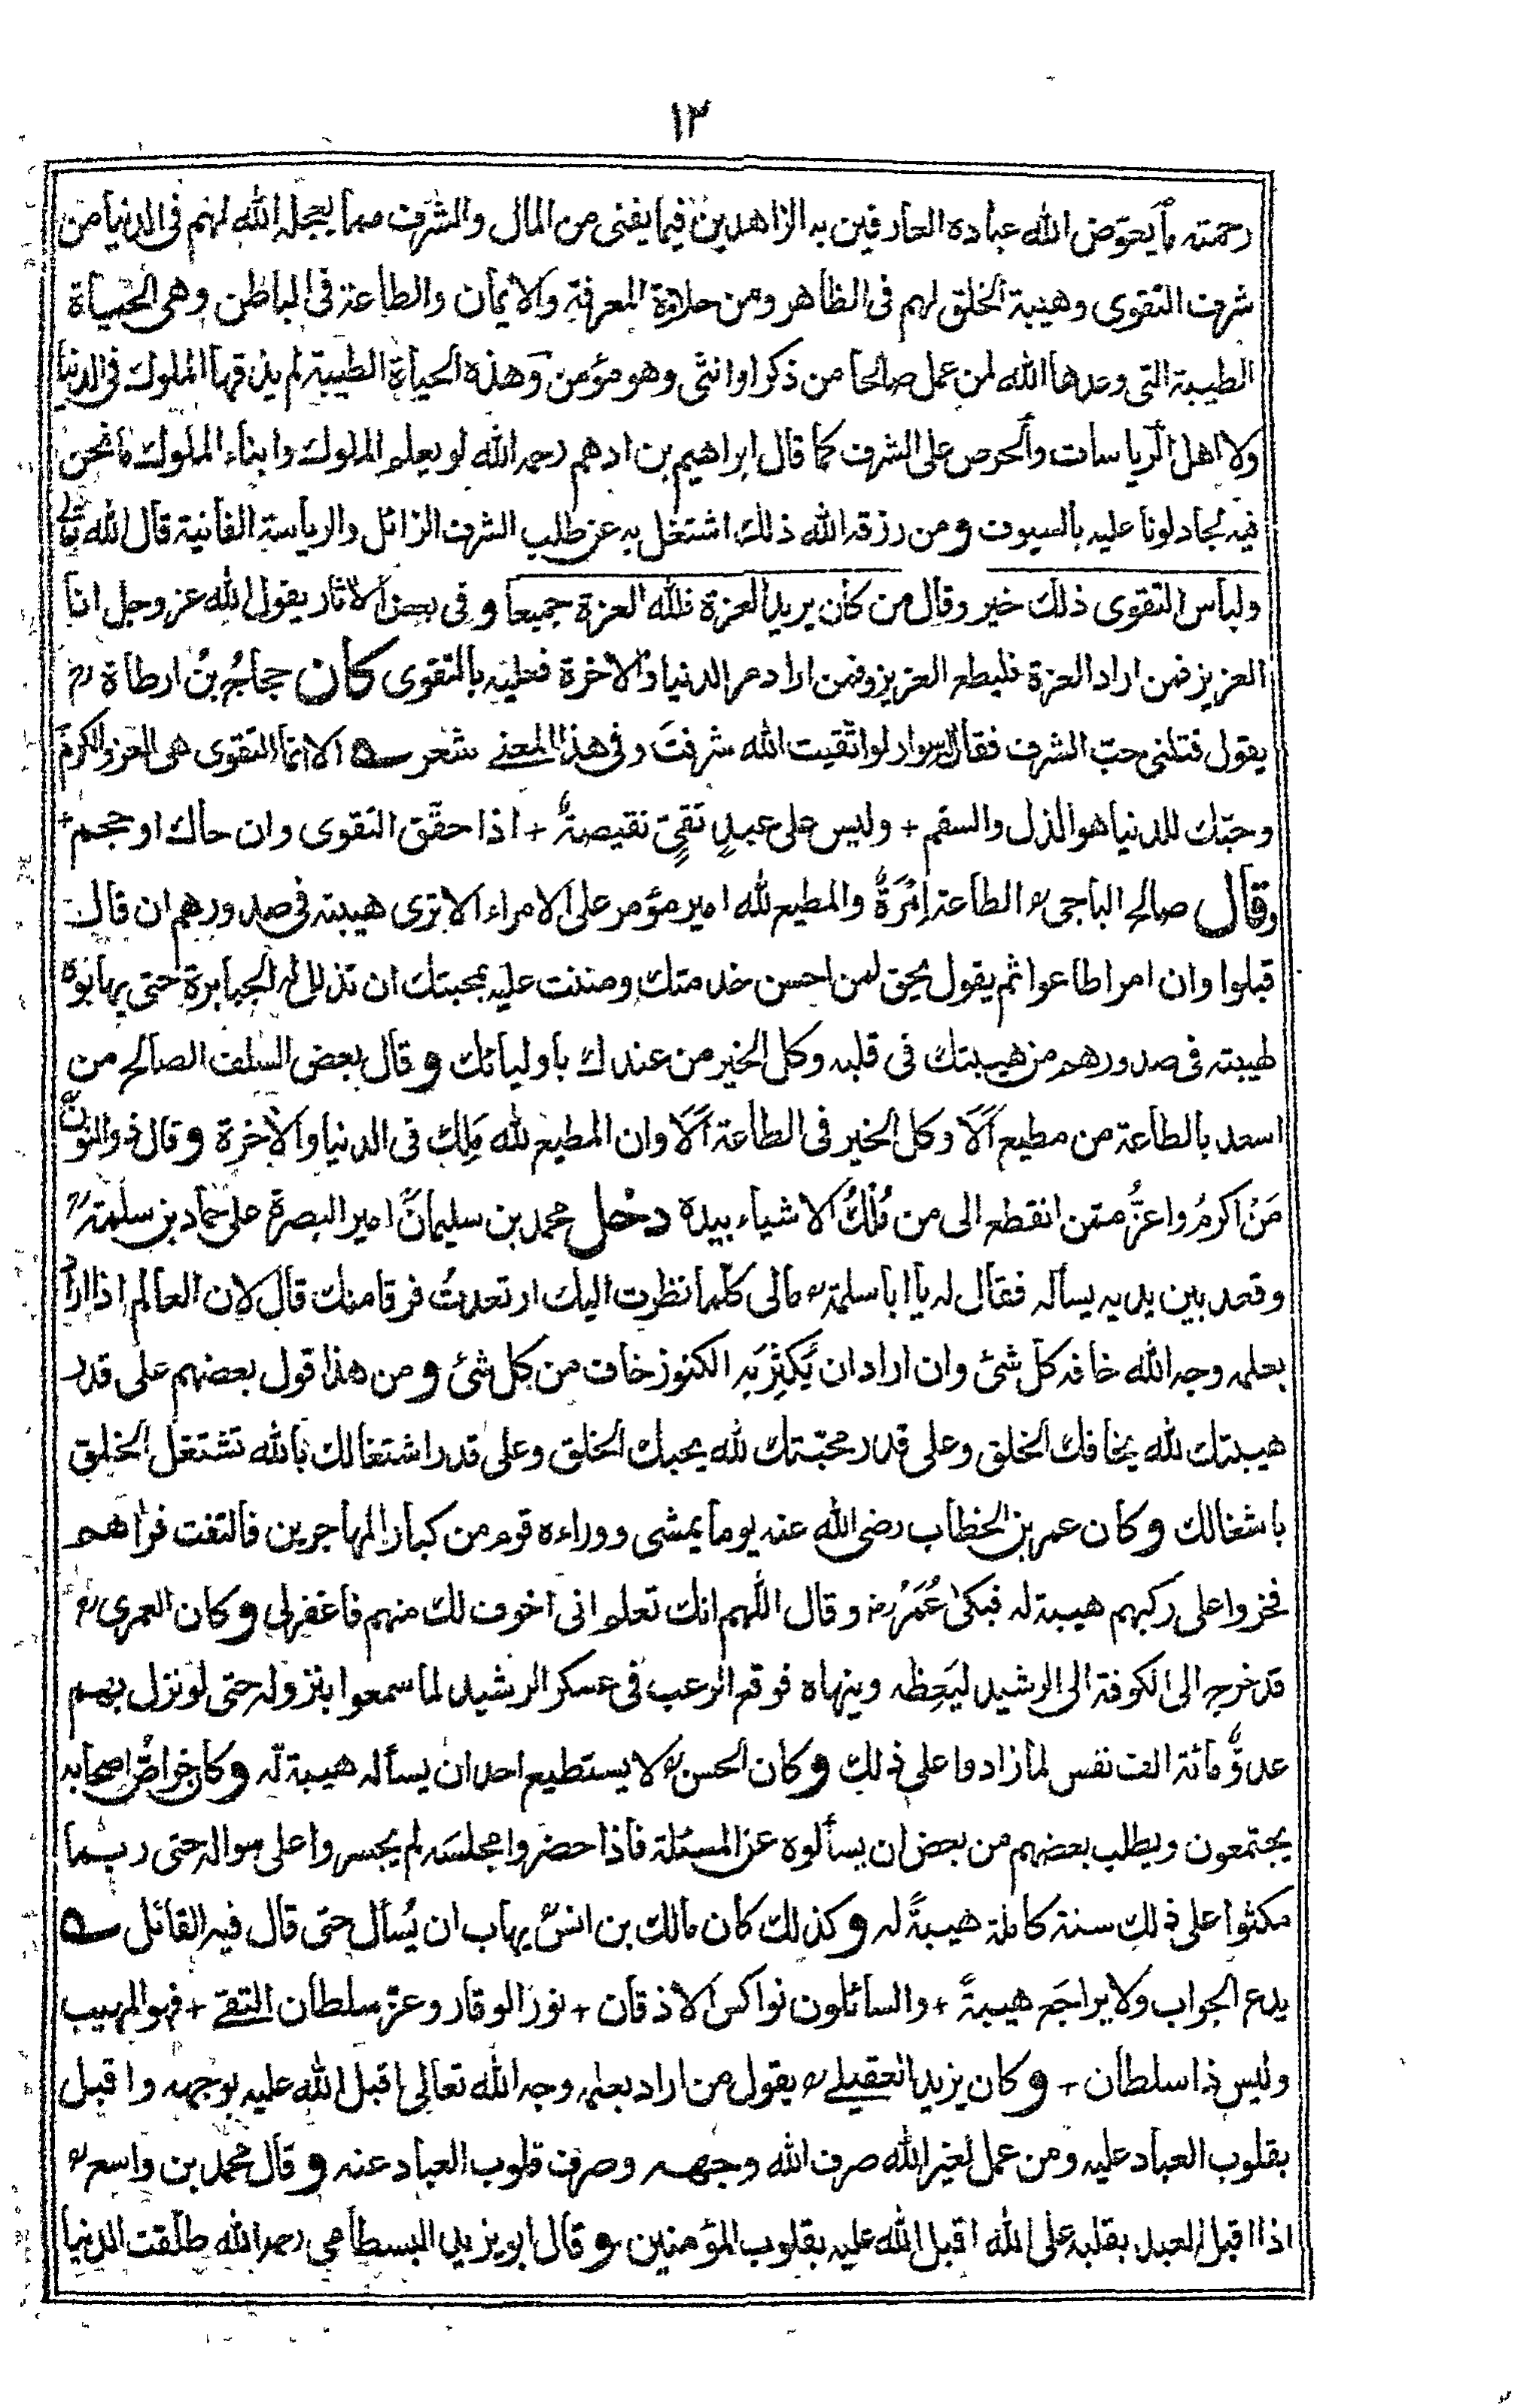 ١٢
رحمته ما يعوّض الله عباده العارفين به الزاهدين فيما يفنى من المال والشرف مما يعجله الله لهم فى الدنيا من
شرف التقوى وهيبة الخلق لهم فى الظاهر ومن حلاوة المعرفة والايمان والطاعة فى الباطن وهى الحياة
الطيبة التى وعدها الله لمن عمل صالحا من ذكر او انثى وهو مؤمن وهذه الحياة الطيبة لم يذقها الملوك فى الدنيا
ولا اهل الرياسات والحرص على الشرف كما قال ابراهيم بن ادهم رحمه الله لو يعلم الملوك وابناء الملوك ما نحن
فيه لجادلونا عليه بالسيوف ومن رزقه الله ذلك اشتغل به عن طلب الشرف الزائل والرياسة الفانية قال الله تعالى
ولباس التقوى ذلك خير وقال من كان يريد العزة فلله العزة جميعا وفى بعض الاثار يقول الله عز وجل انا
العزيز فمن اراد العزة فليطع العزيز ومن اراد عز الدنيا والاخرة فعليه بالتقوى كان حجاجُ بنُ ارطاة رح
يقول قتلنى حبّ الشرف فقال له سوار لو اتقيت الله شرفتَ وفى هذا المعنے شعر ؎ الا انما التقوى هى العز والكرم
وحبّك للدنيا هو الذل والسقم + وليس على عبدٍ تقىٍّ نقيصةٌ + اذا حقّق التقوى وان حاك او حجم +
وقال صالح الباجى رح الطاعة اِمْرَةٌ والمطيع لله امير مؤمر على الامراء الا ترى هيبته فى صدورهم ان قال
قبلوا وان امر اطاعوا ثم يقول يحق لمن احسن خدمتك ومننت عليه بمحبتك ان تذلل له الجبابرة حتى يهابوه
لهيبته فى صدورهم من هيبتك فى قلبه وكل الخير من عندك باوليائك وقال بعض السلف الصالح من
اسعد بالطاعة من مطيع اَلَا وكل الخير فى الطاعة اَلَا وان المطيع لله مَلِك فى الدنيا والاخرة وقال ذو النون رح
مَنْ اكرمُ واعزُّ ممن انقطع الى من مُلْكُ الاشياء بيده دخل محمد بن سليمان امير البصرة على حماد بن سلمة رح
وقعد بين يديه يسأله فقال له يا ابا سلمة رح مالى كلّما نظرت اليك ارتعدتُ فرقا منك قال لان العالم اذا اراد
بعلمه وجه الله خافه كل شئ وان اراد ان يُكثِرَ به الكنوز خاف من كل شئ ومن هذا قول بعضهم على قدر
هيبتك لله يخافك الخلق وعلى قدر محبّتك لله يحبك الخلق وعلى قدر اشتغالك بالله تشتغل الخلق
باشغالك وكان عمر بن الخطاب رضى الله عنه يوما يمشى ووراءه قوم من كبار المهاجرين فالتفت فراهم
فخروا على ركبهم هيبة له فبكى عُمَرُ رض وقال اللهم انك تعلم انى اخوف لك منهم فاغفر لى وكان العمرى رح
قد خرج الى الكوفة الى الرشيد ليَعِظه وينهاه فوقع الرعب فى عسكر الرشيد لما سمعوا بنزوله حتى لو نزل بهم
عدوٌّ مائة الف نفس لما زادوا على ذلك وكان الحسن رح لا يستطيع احد ان يسأله هيبة له وكان خواصُّ اصحابه
يجتمعون ويطلب بعضهم من بعض ان يسألوه عن المسئلة فاذا حضروا مجلسه لم يجسروا على سواله حتى ربما
مكثوا على ذلك سنة كاملة هيبةً له وكذلك كان مالك بن انس رح يهاب ان يُسأل حتى قال فيه القائل ؎
يدع الجواب ولا يراجَع هيبةً + والسائلون نواكس الاذقان + نور الوقار وعزّ سلطان التقے + فهو المهيب
وليس ذا سلطان + وكان يزيد العقيلے رح يقول من اراد بعلمه وجه الله تعالى اقبل الله عليه بوجهه واقبل
بقلوب العباد عليه ومن عمل لغير الله صرف الله وجهه وصرف قلوب العباد عنه وقال محمد بن واسع رح
اذا اقبل العبد بقلبه على الله اقبل الله عليه بقلوب المؤمنين وقال ابو يزيد البسطامى رحمه الله طلّقت الدنيا